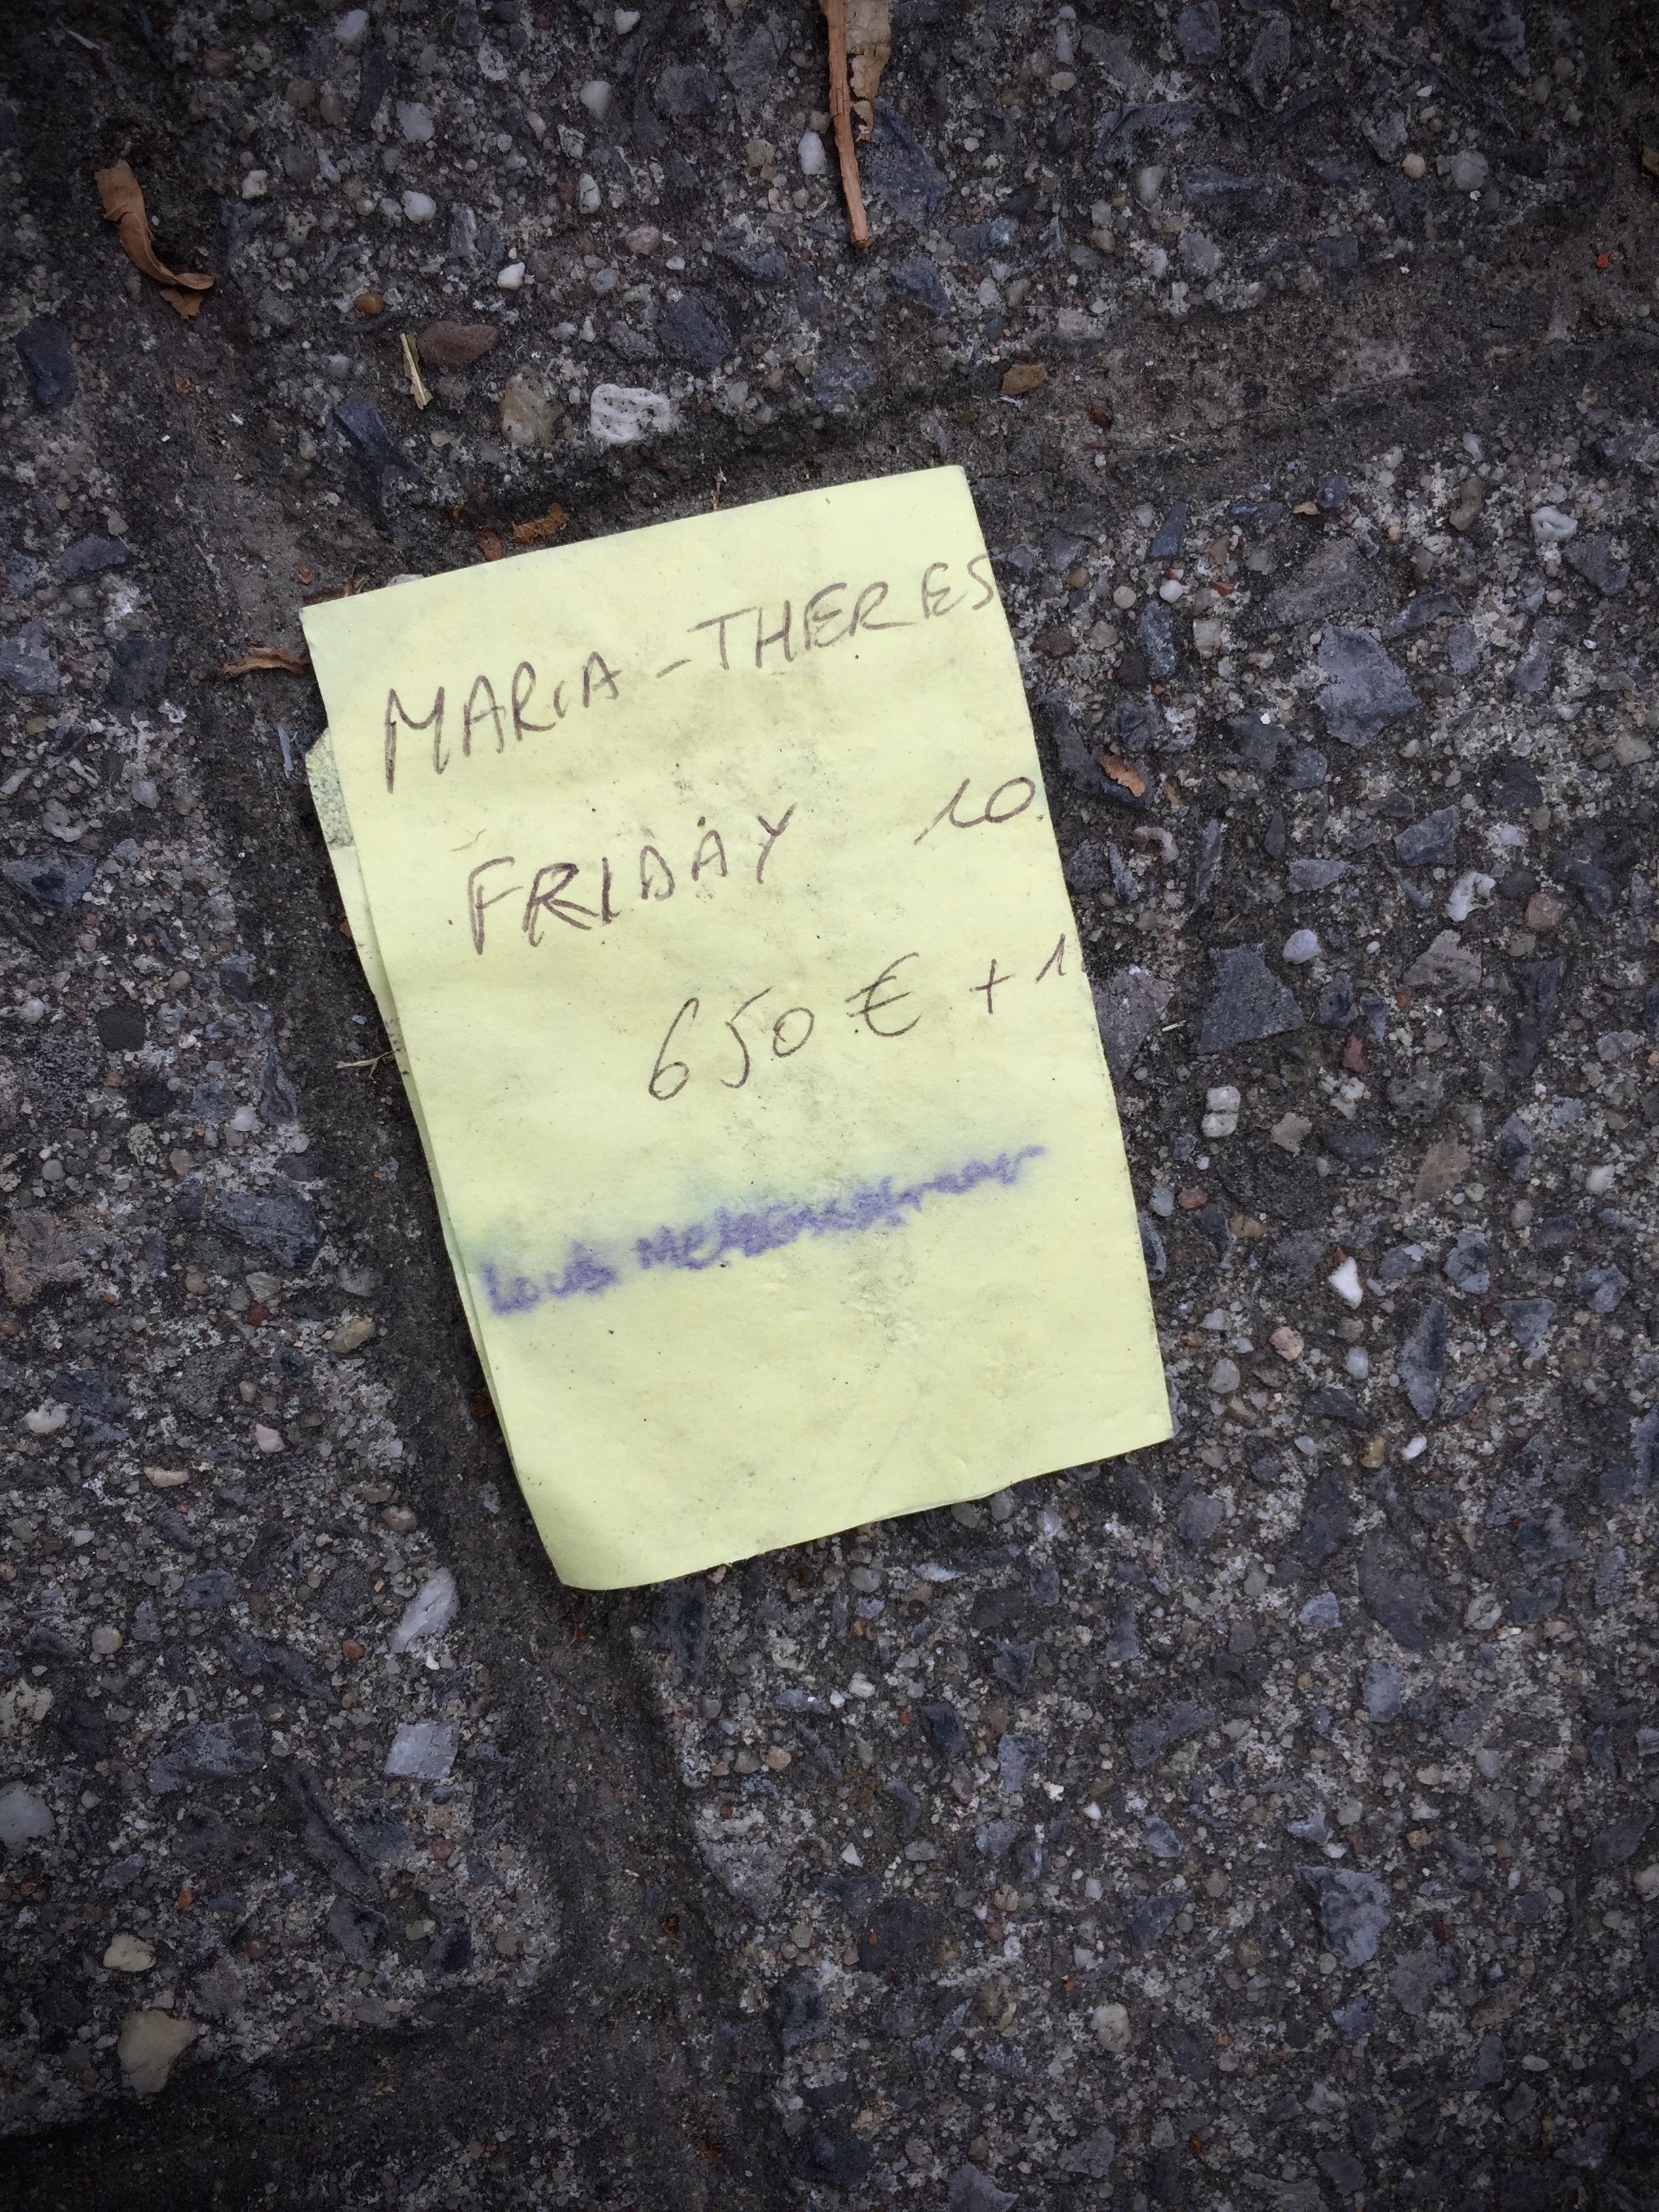 MARIA-THERES
FRIDAY 10.
650 € + 1
Louis